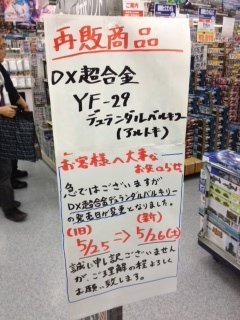 再販商品
DX超合金
YF-29
デュランダルバルキリー
(アルト機)
お客様へ大事な
お知らせ
急ではございますが
DX超合金デュランダルバルキリー
の発売日が変更となりました。
(旧) (新)
5/25 ⇒ 5/26(土)
誠に申し訳ございません
が、ご理解の程よろしく
お願い致します。